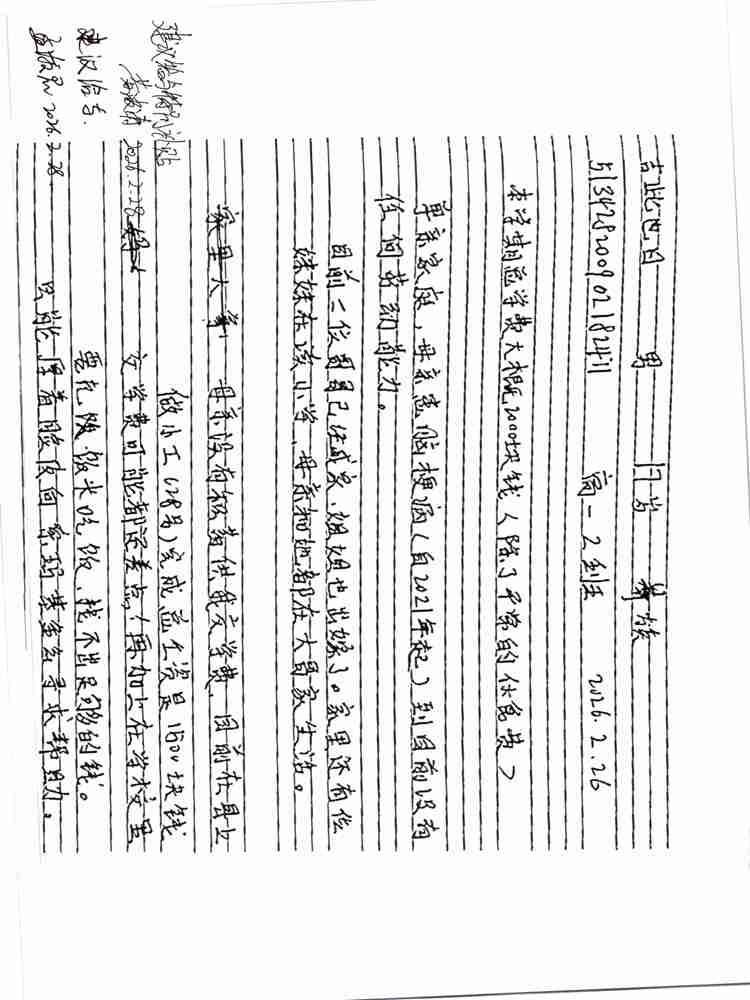 吉 日 男 月与 族
513428200902182411 高一2班 2026.2.26
本学期起学费大概2000块钱（除了平常的伙食费）
单亲家庭，母亲患脑梗病（自2021年起）到目前没有
任何劳动能力。
目前一位哥哥已经成家，姐姐也出嫁了。家里还有位
妹妹在读小学，母亲和她都在大哥家生活。
家里大 母亲没有积蓄供我交学费，目前在县上
做小工（28号）完成总工资是1600块钱
交学费可能都还差点！再加上在学校里
要充 饭卡吃饭，找不出足够的钱。
只能厚着脸皮向 基金会寻求帮助。
建议给与
2026.2.28
建议给与
2026.2.28